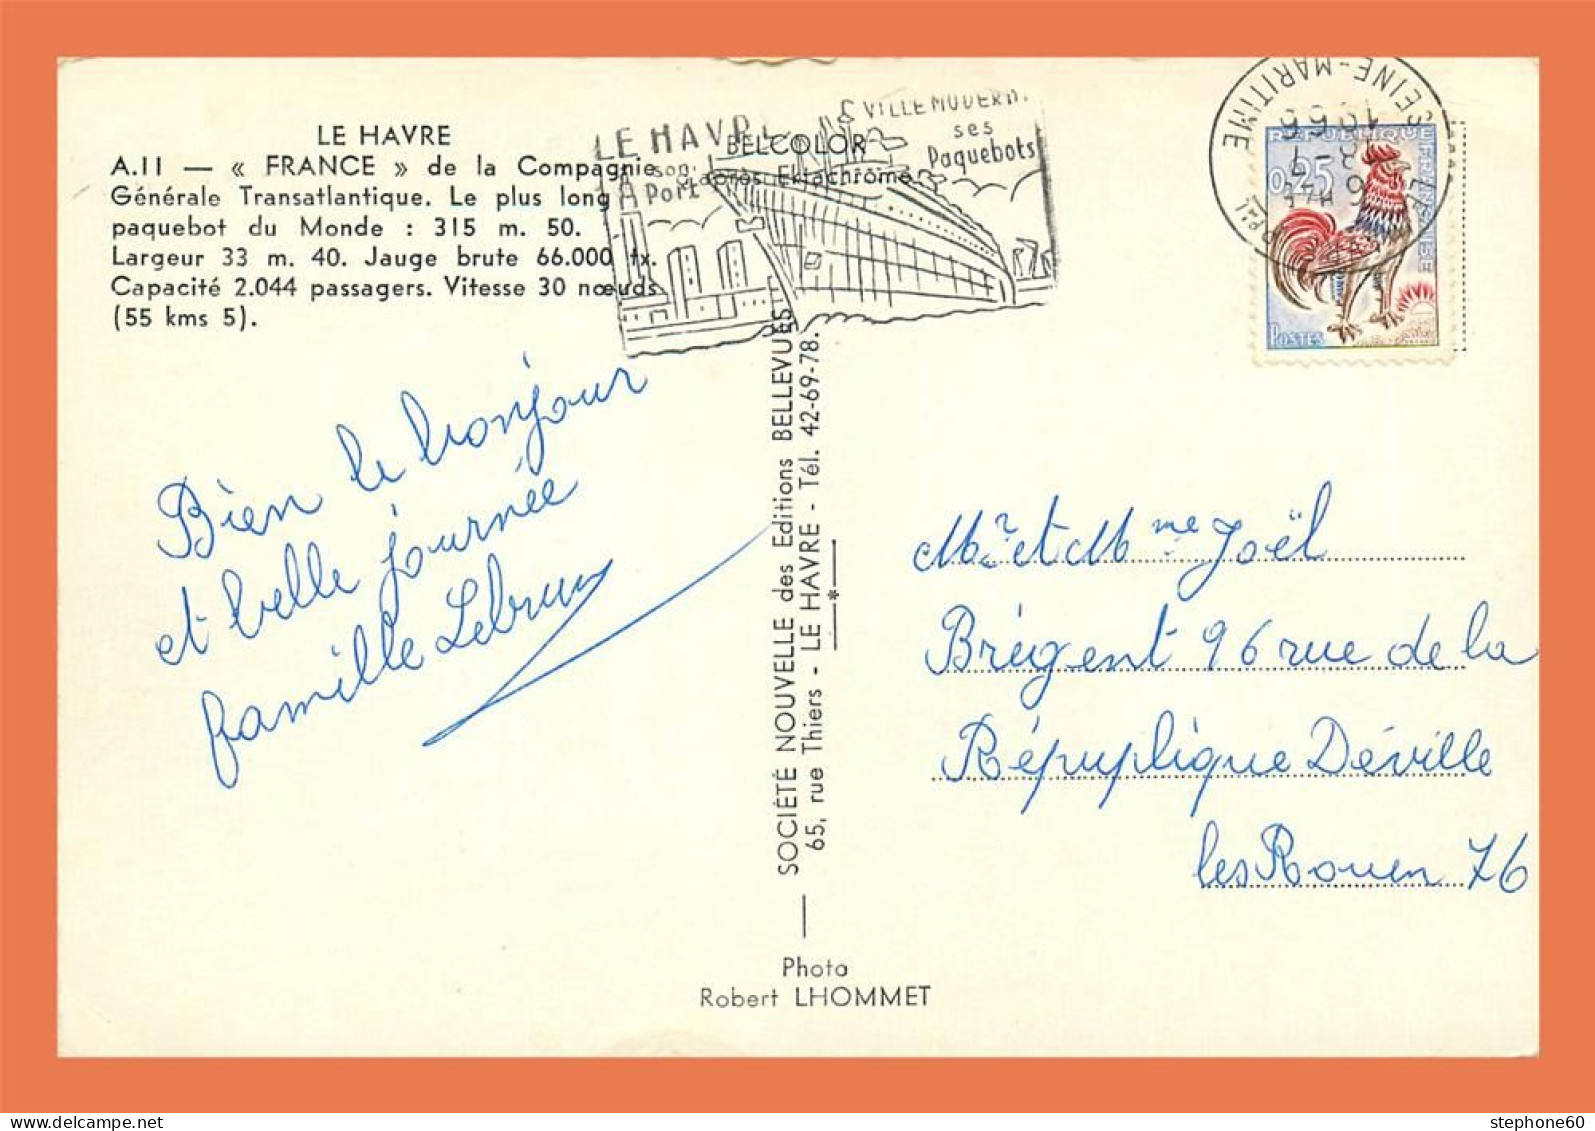 LE HAVRE
A.11 — « FRANCE » de la Compagnie
Générale Transatlantique. Le plus long
paquebot du Monde : 315 m. 50.
Largeur 33 m. 40. Jauge brute 66.000 tx.
Capacité 2.044 passagers. Vitesse 30 nœuds
(55 kms 5).
BELCOLOR
d'après Ektachrome
LE HAVRE
son
Port
VILLE MODERNE
ses
Paquebots
SEINE-MARITIME
1966
REPUBLIQUE FRANÇAISE
0,25
POSTES
Bien le bonjour
et belle journée
famille Lebrun
SOCIÉTÉ NOUVELLE des Editions BELLEVUES
65, rue Thiers - LE HAVRE - Tél. 42-69-78.
Mr et Mme Joël
Brégent 96 rue de la
République Déville
les Rouen 76
Photo
Robert LHOMMET
stephone60